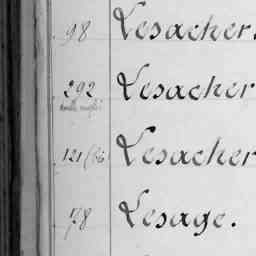 98 Lesacher.
292 Lesacher
121 (bis) Lesacher
78 Lesage.